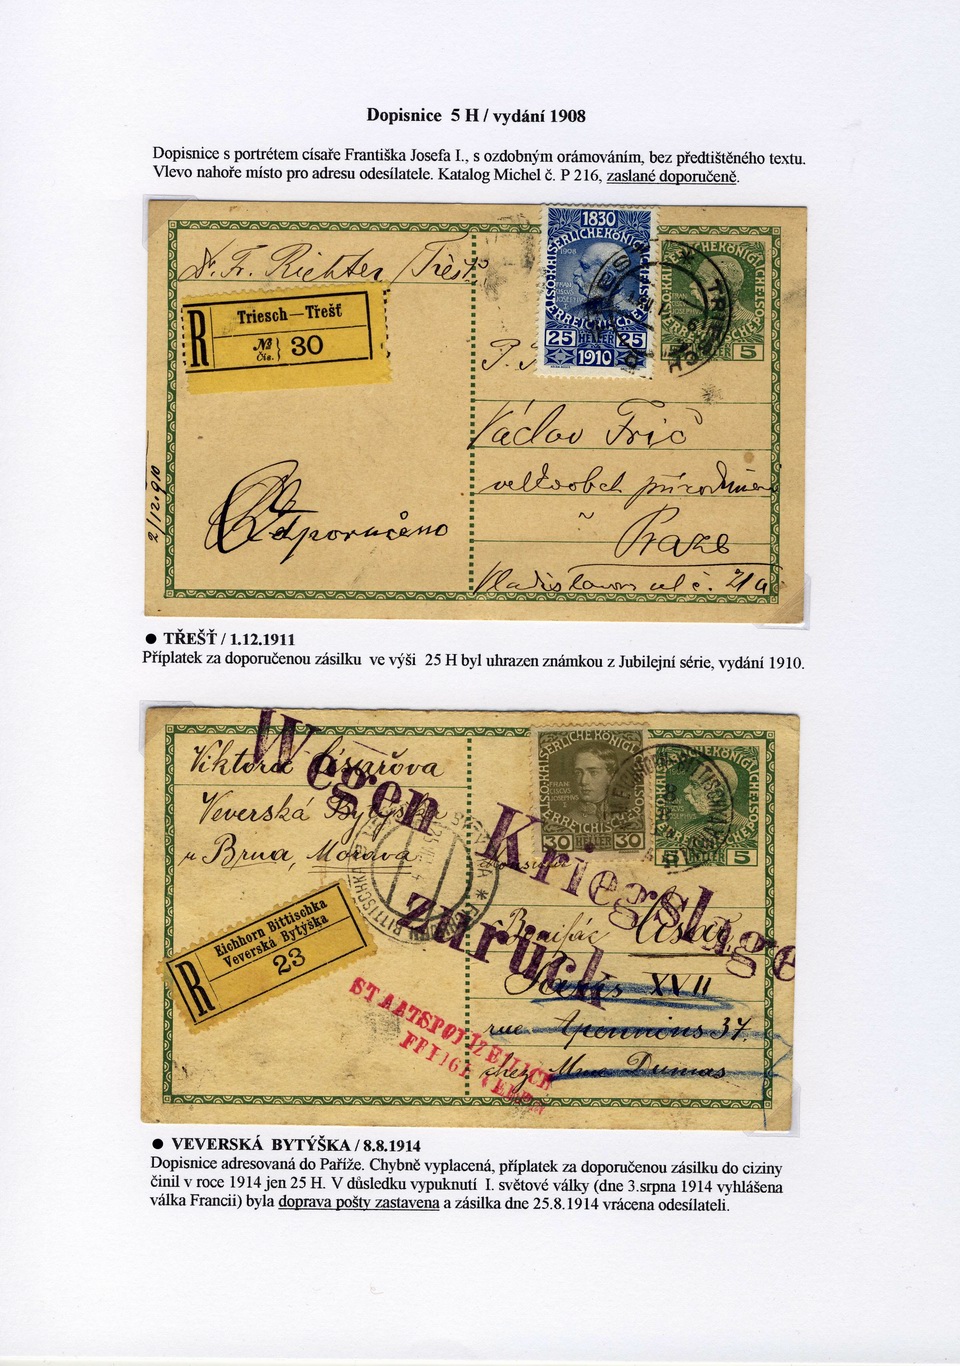 Dopisnice 5 H / vydání 1908
Dopisnice s portrétem císaře Františka Josefa I., s ozdobným orámováním, bez předtištěného textu.
Vlevo nahoře místo pro adresu odesílatele. Katalog Michel č. P 216, zaslané doporučeně.
Dr. Fr. Richter / Třešť
R
Triesch—Třešť
№ Čís. 30
1830
1908
25 HELLER 25
1910
5
TRIESCH
Václav Frič
velkoobch. přírodnin
v Praze
Vladislavova ul. č. 21a
Odporučeno
2/12.910
● TŘEŠŤ / 1.12.1911
Příplatek za doporučenou zásilku ve výši 25 H byl uhrazen známkou z Jubilejní série, vydání 1910.
Viktorie Císařova
Veverská Bytýška
u Brna, Morava
Wegen Kriegslage
zurück
30 HELLER 30
HELLER 5
R
Eichhorn Bittischka
Veverská Bytýška
23
Bonifác Císař
Paris XVII
rue Apennins 37.
chez Mme Dumas
STAATSPOLIZEILICH
● VEVERSKÁ BYTÝŠKA / 8.8.1914
Dopisnice adresovaná do Paříže. Chybně vyplacená, příplatek za doporučenou zásilku do ciziny
činil v roce 1914 jen 25 H. V důsledku vypuknutí I. světové války (dne 3.srpna 1914 vyhlášena
válka Francii) byla doprava pošty zastavena a zásilka dne 25.8.1914 vrácena odesílateli.